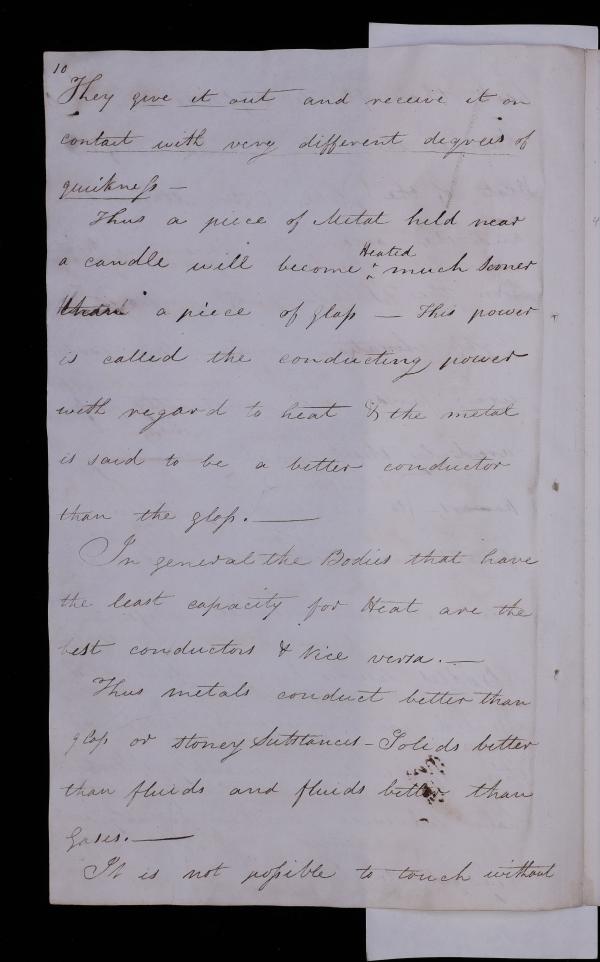 10
They give it out and receive it on
contact with very different degrees of
quickneſs —
Thus a piece of Metal held near
Heated
a candle will become ^ much sooner
than a piece of glaſs — This power
is called the conducting power
with regard to heat & the metal
is said to be a better conductor
than the glaſs. —
In general the Bodies that have
the least capacity for Heat are the
best conductors & Vice versa. —
Thus metals conduct better than
glaſs or stoney Substances — Solids better
than fluids and fluids better than
Gases. —
It is not poſsible to touch without